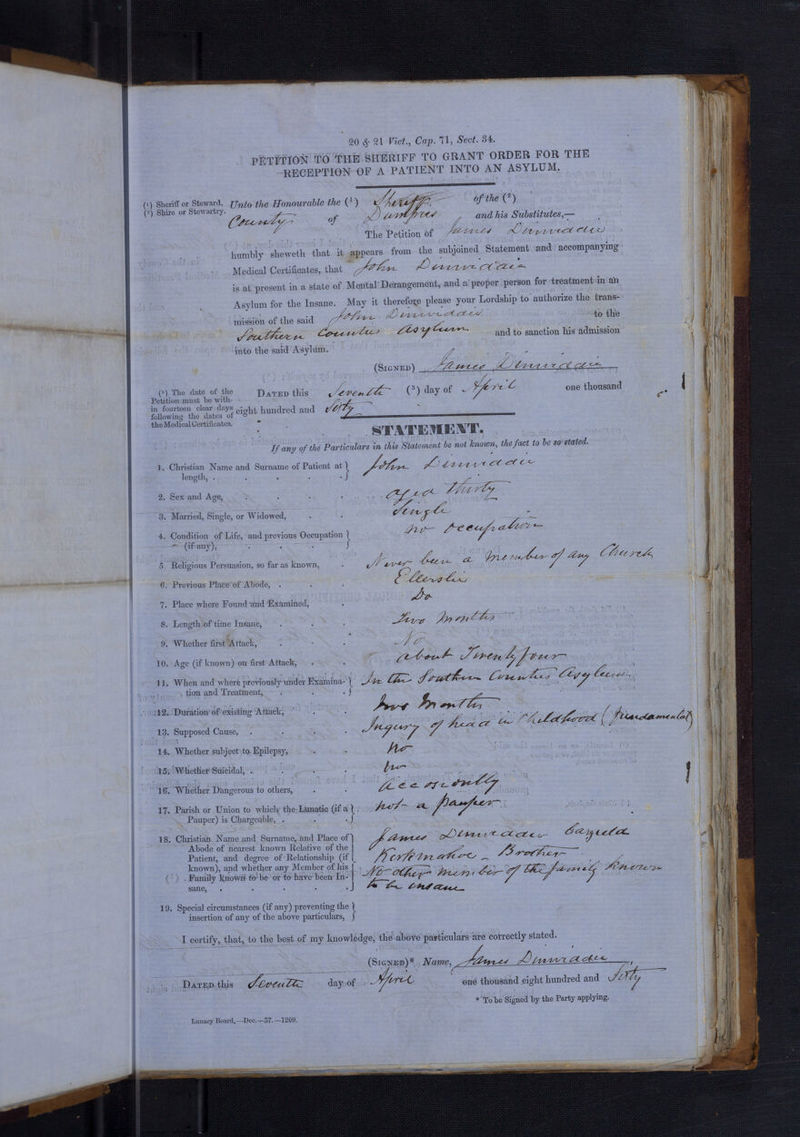 20 & 21 Vict., Cap. 71, Sect. 34.
PETITION TO THE SHERIFF TO GRANT ORDER FOR THE
RECEPTION OF A PATIENT INTO AN ASYLUM.
(1) Sheriff or Steward.
(2) Shire or Stewartry.
Unto the Honourable the (1) Sheriff of the (2)
County of Dumfries and his Substitutes,—
The Petition of James Dinwiddie
humbly sheweth that it appears from the subjoined Statement and accompanying
Medical Certificates, that John Dinwiddie
is at present in a state of Mental Derangement, and a proper person for treatment in an
Asylum for the Insane. May it therefore please your Lordship to authorize the trans-
mission of the said John Dinwiddie to the
Southern Counties Asylum and to sanction his admission
into the said Asylum.
(SIGNED) James Dinwiddie
(3) The date of the
Petition must be with-
in fourteen clear days
following the dates of
the Medical Certificates.
DATED this Seventh (3) day of April one thousand
eight hundred and Sixty
STATEMENT.
If any of the Particulars in this Statement be not known, the fact to be so stated.
1. Christian Name and Surname of Patient at
length, . John Dinwiddie
2. Sex and Age, aged thirty
3. Married, Single, or Widowed, Single
4. Condition of Life, and previous Occupation
(if any), no occupation
5. Religious Persuasion, so far as known, Never been a Member of any Church
6. Previous Place of Abode, Ellerslie
7. Place where Found and Examined, Do
8. Length of time Insane, Two Months
9. Whether first Attack, No
10. Age (if known) on first Attack, about Twenty four
11. When and where previously under Examina-
tion and Treatment, In the Southern Counties Asylum
12. Duration of existing Attack, Two Months
13. Supposed Cause, Ingury of head in Childhood (fundamental)
14. Whether subject to Epilepsy, No
15. Whether Suicidal, No
16. Whether Dangerous to others, accosionlly
17. Parish or Union to which the Lunatic (if a
Pauper) is Chargeable, not a pauper
18. Christian Name and Surname, and Place of
Abode of nearest known Relative of the
Patient, and degree of Relationship (if
known), and whether any Member of his
Family known to be or to have been In-
sane,
James Dinwiddie
Kirkmahoe - Brother
No other member of the family known
to be insane
19. Special circumstances (if any) preventing the
insertion of any of the above particulars,
I certify, that, to the best of my knowledge, the above particulars are correctly stated.
(SIGNED)* Name, James Dinwiddie
DATED this Seventh day of April one thousand eight hundred and Sixty
* To be Signed by the Party applying.
Lunacy Board,—Dec.—57.—1209.